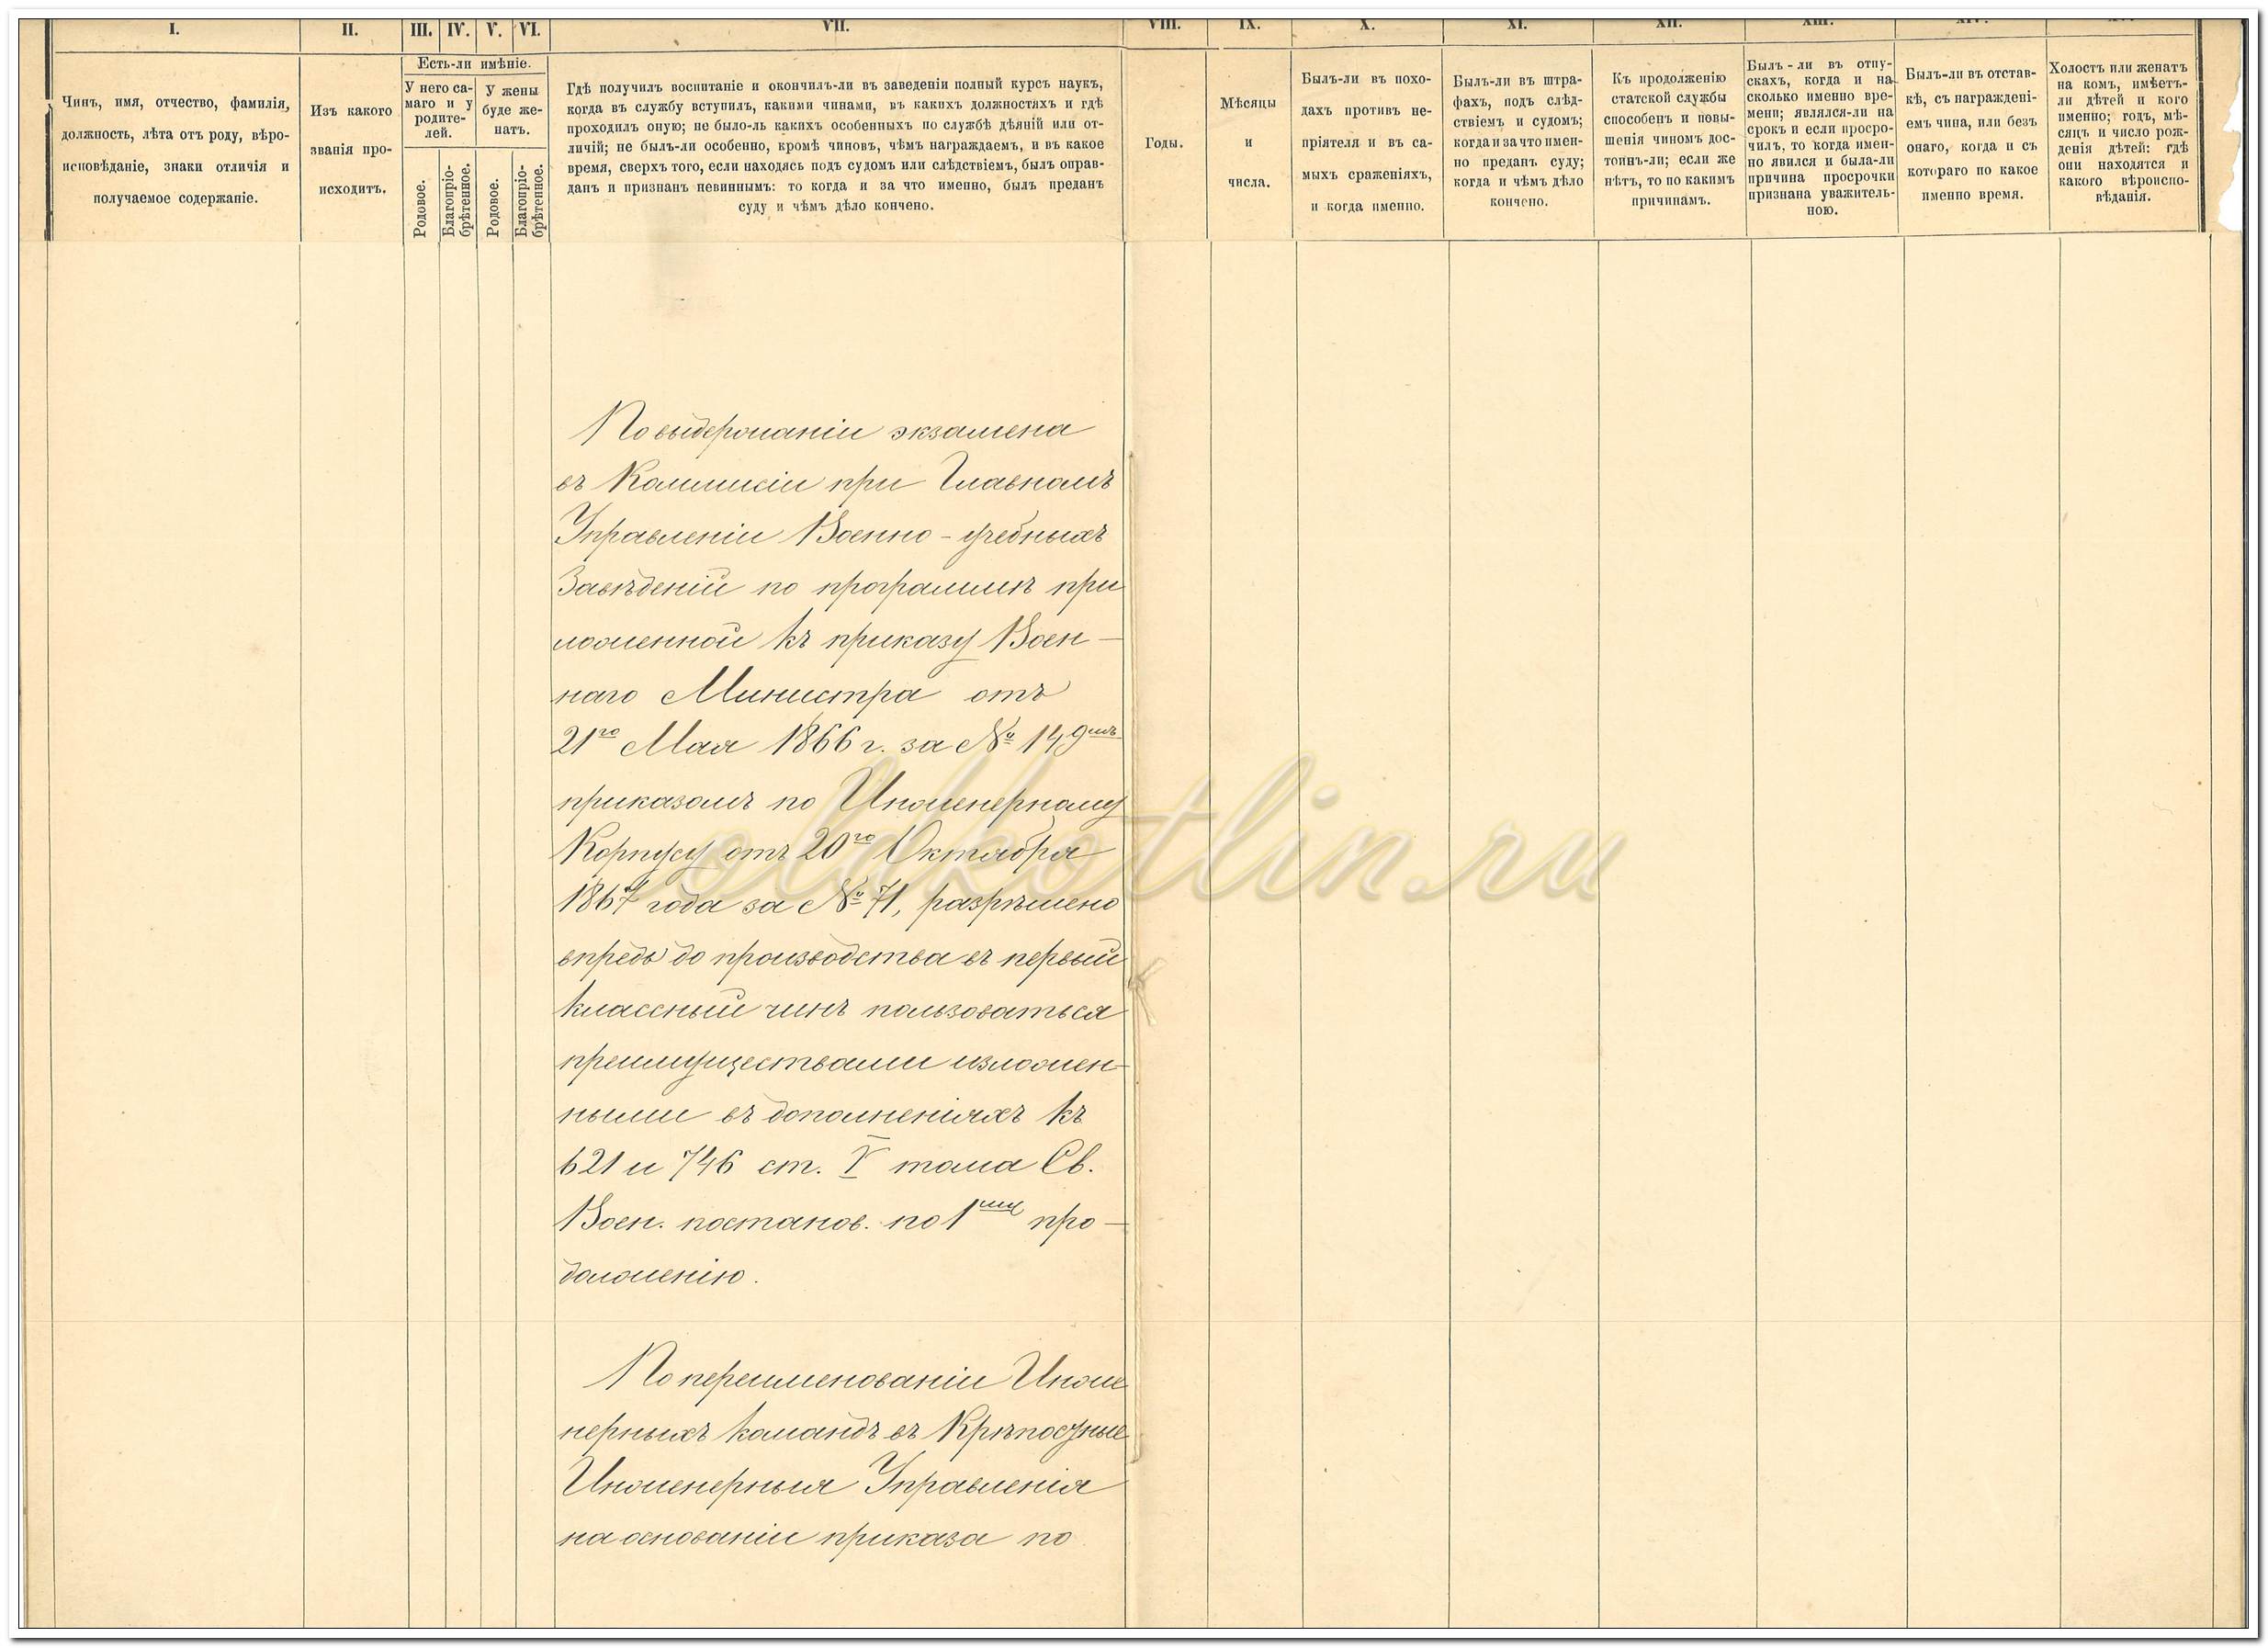 I.
II.
III.
IV.
V.
VI.
VII.
VIII.
IX.
X.
XI.
XII.
XIII.
XIV.
XV.
Чинъ, имя, отчество, фамилія,
должность, лѣта отъ роду, вѣро-
исповѣданіе, знаки отличія и
получаемое содержаніе.
Изъ какого
званія про-
исходитъ.
Есть-ли имѣніе.
У него са-
маго и у
родите-
лей.
У жены
буде же-
натъ.
Родовое.
Благопріо-
брѣтенное.
Родовое.
Благопріо-
брѣтенное.
Гдѣ получилъ воспитаніе и окончилъ-ли въ заведеніи полный курсъ наукъ,
когда въ службу вступилъ, какими чинами, въ какихъ должностяхъ и гдѣ
проходилъ оную; не было-ль какихъ особенныхъ по службѣ дѣяній или от-
личій; не былъ-ли особенно, кромѣ чиновъ, чѣмъ награждаемъ, и въ какое
время, сверхъ того, если находясь подъ судомъ или слѣдствіемъ, былъ оправ-
данъ и признанъ невиннымъ: то когда и за что именно, былъ преданъ
суду и чѣмъ дѣло кончено.
Годы.
Мѣсяцы
и
числа.
Былъ-ли въ похо-
дахъ противъ не-
пріятеля и въ са-
мыхъ сраженіяхъ,
и когда именно.
Былъ-ли въ штра-
фахъ, подъ слѣд-
ствіемъ и судомъ;
когда и за что имен-
но преданъ суду;
когда и чѣмъ дѣло
кончено.
Къ продолженію
статской службы
способенъ и повы-
шенія чиномъ дос-
тоинъ-ли; если же
нѣтъ, то по какимъ
причинамъ.
Былъ-ли въ отпу-
скахъ, когда и на
сколько именно вре-
мени; являлся-ли на
срокъ и если просро-
чилъ, то когда имен-
но явился и была-ли
причина просрочки
признана уважитель-
ною.
Былъ-ли въ отстав-
кѣ, съ награжденi-
емъ чина, или безъ
онаго, когда и съ
котораго по какое
именно время.
Холостъ или женатъ
на комъ, имѣетъ-
ли дѣтей и кого
именно; годъ, мѣ-
сяцъ и число рож-
денія дѣтей: гдѣ
они находятся и
какого вѣроиспо-
вѣданія.
По выдержаніи экзамена
въ Коммисіи при Главномъ
Управленіи Военно-учебныхъ
Завѣденій по программѣ при
ложенной къ приказу Воен-
наго Министра отъ
21го Мая 1866 г. за № 149мъ
приказомъ по Инженерному
Корпусу отъ 20го Октября
1867 года за № 71, разрѣшено
впредь до производства въ первый
классный чинъ пользоваться
преимуществами изложен-
ными въ дополненіяхъ къ
621 и 746 ст. V тома Св.
Воен. постанов. по 1му про-
долженію.
По переименованіи Инже
нерныхъ командъ въ Крѣпостные
Инженерныя Управленія
на основаніи приказа по
oldkotlin.ru